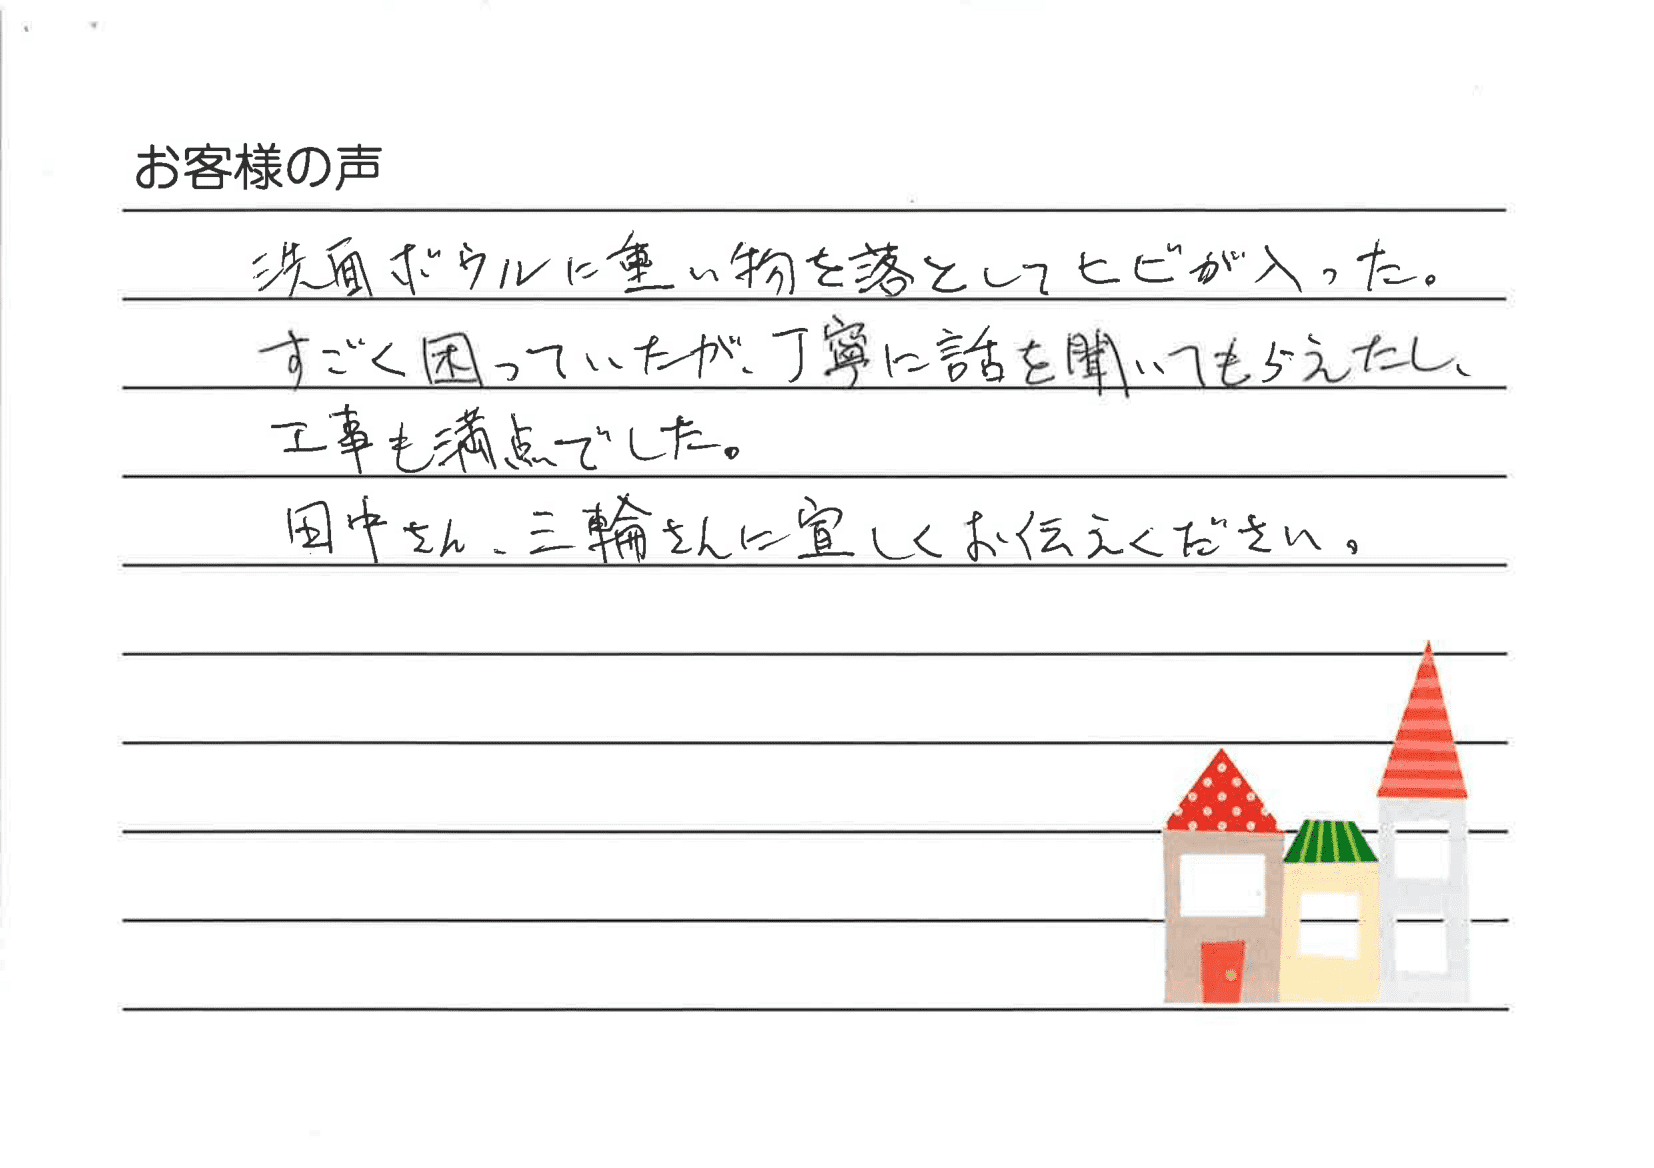 お客様の声
洗面ボウルに重い物を落としてヒビが入った。
すごく困っていたが、丁寧に話を聞いてもらえたし、
工事も満点でした。
田中さん、三輪さんに宜しくお伝えください。